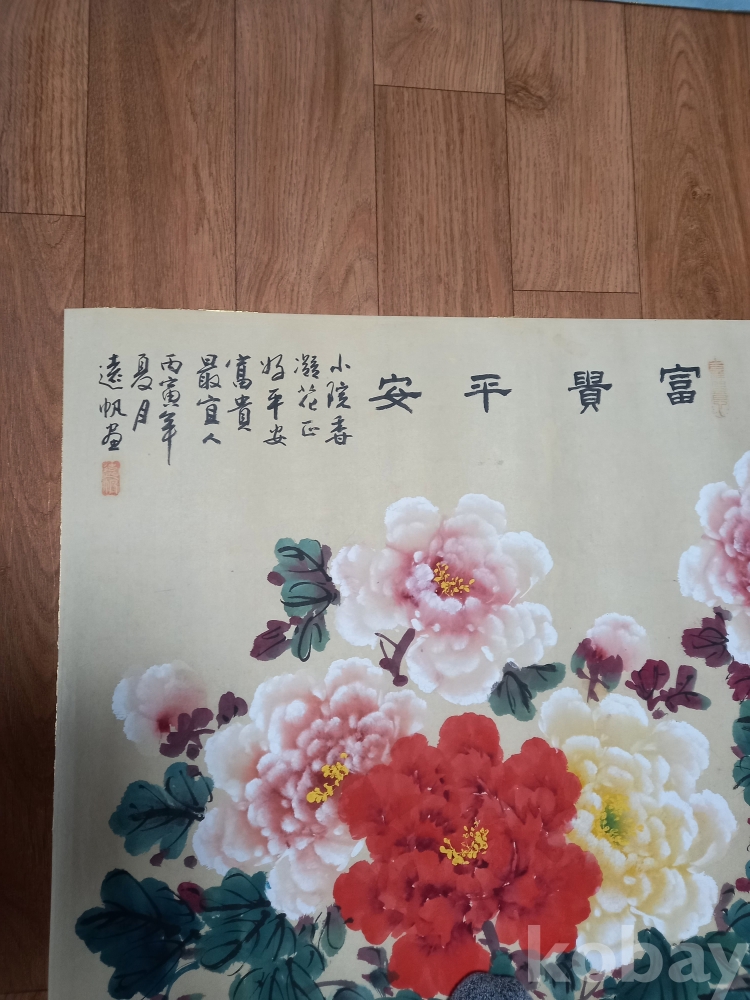 富貴平安
小院香
凝花正
好平安
富貴
最宜人
丙寅年
夏月
遠帆画
kobay